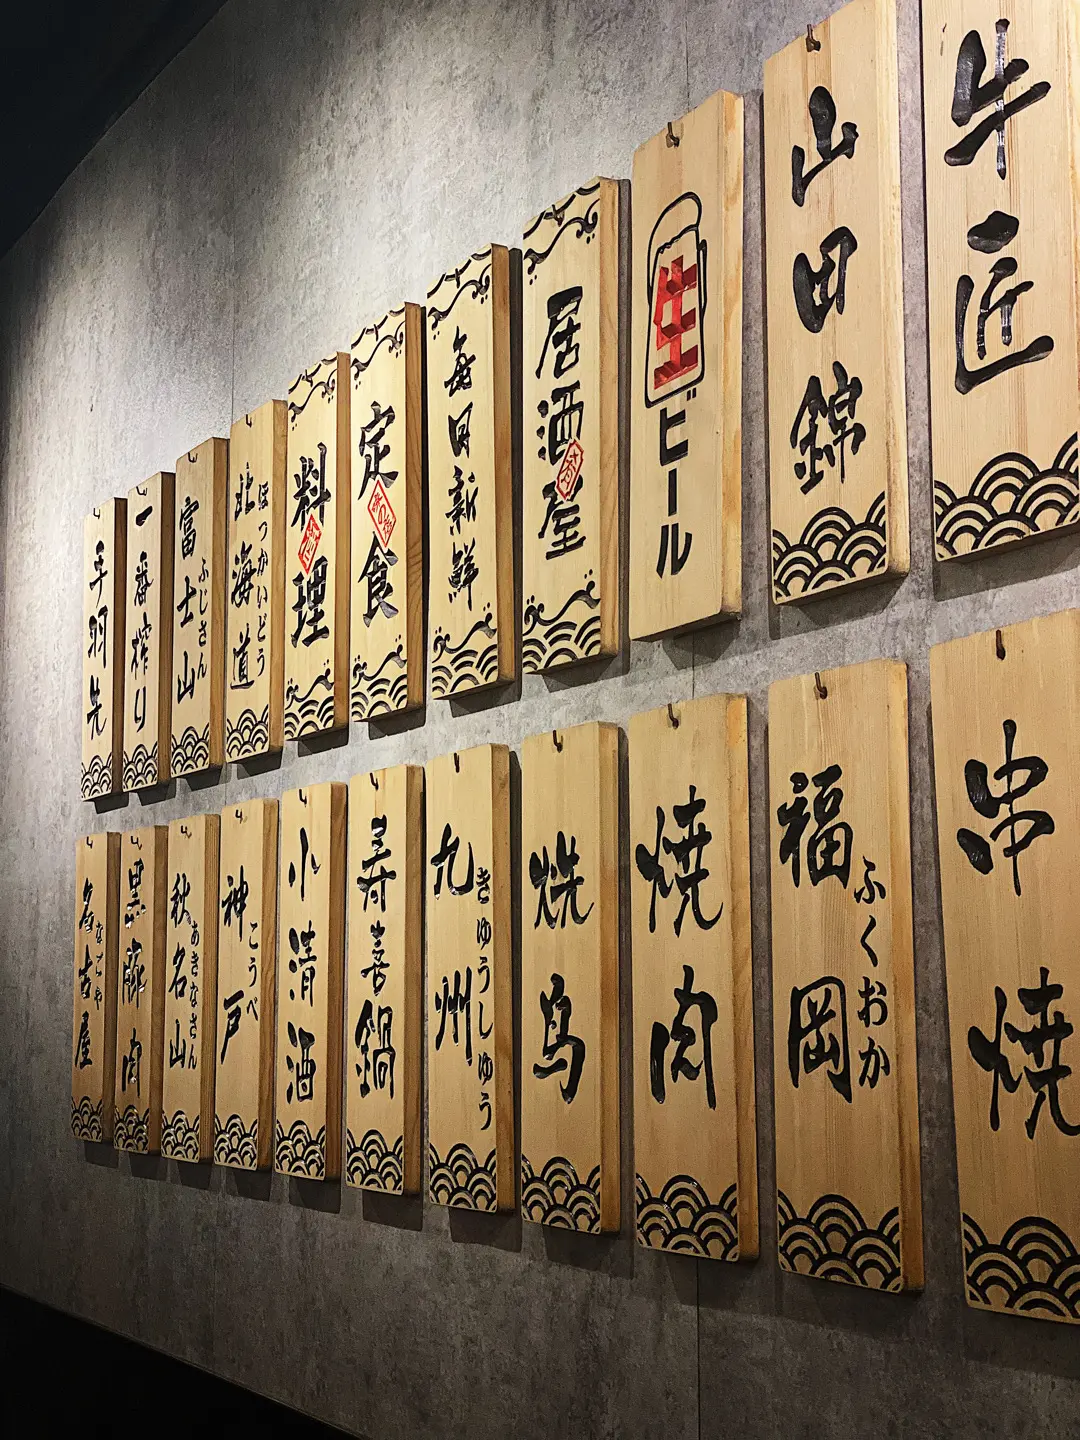 牛匠
山田錦
生ビール
居酒屋
毎日新鮮
定食
料理
北海道
ほっかいどう
富士山
ふじさん
一番搾り
手羽先
串焼
福岡
ふくおか
焼肉
焼鳥
九州
きゅうしゅう
寿喜鍋
小清酒
神戸
こうべ
秋名山
あきなさん
黒豚肉
名古屋
なごや